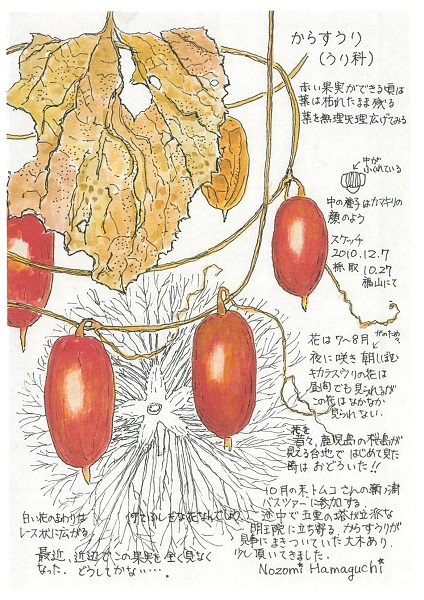 からすうり
(うり科)
赤い果実ができる頃は
葉は枯れたまま残る
葉を無理矢理広げてみる
中が
ふくれている
中の種子はカマキリの
顔のよう
スケッチ
2010.12.7
採取 10.27
福山にて
花は7〜8月
夜に咲き朝しぼむ
キカラスウリの花は
昼間でも見られるが
この花はなかなか
見られない.
花を
昔々,鹿児島の桜島が
見える台地で はじめて見た
時は おどろいた!!
10月の末トムコさんの
バスツアーに参加する.
途中で 五重の塔が立派な
明王院に立ち寄る. からすうりが
見事にまきついていた大木あり.
少し頂いてきました.
白い花のまわりは
レース状に広がる.
何てふしぎな花なんでしょう
最近,近辺でこの果実を全く見なく
なった. どうしてかな‥‥.
Nozomi Hamaguchi